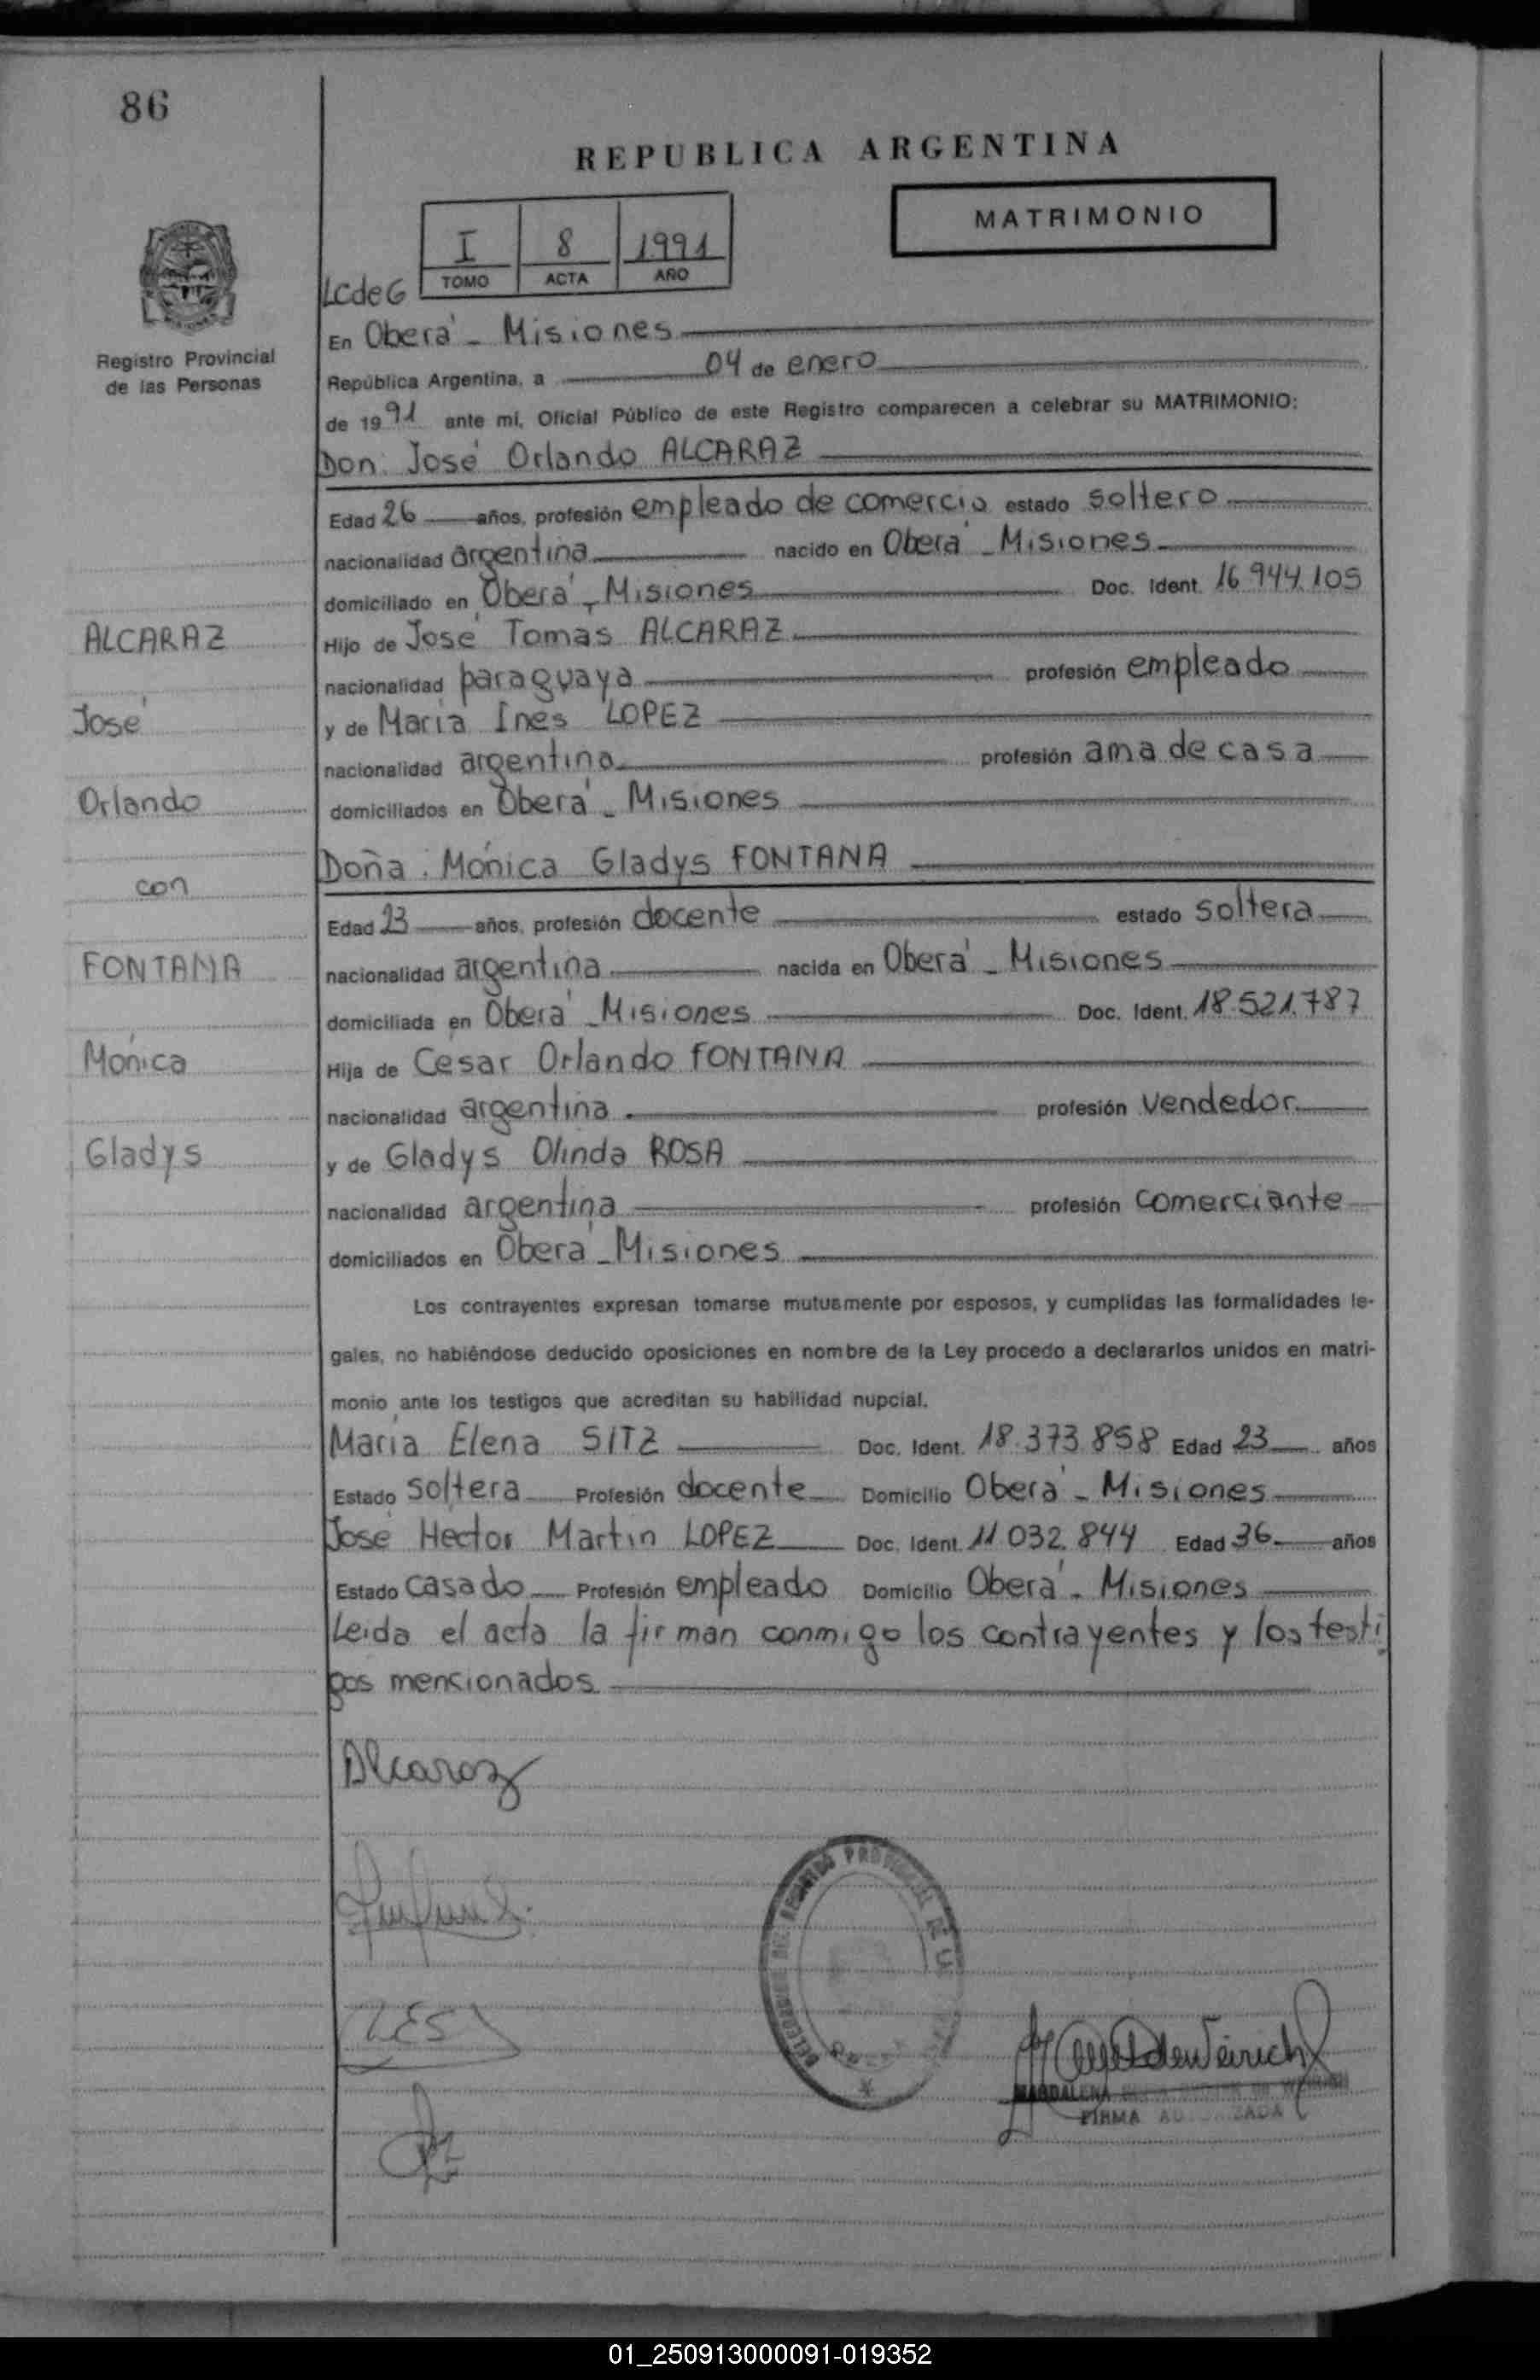 86
REPUBLICA ARGENTINA
MATRIMONIO
I 8 1991
TOMO ACTA AÑO
LCdeG
Registro Provincial
de las Personas
En Oberá - Misiones
República Argentina, a 04 de enero
de 1991 ante mi, Oficial Público de este Registro comparecen a celebrar su MATRIMONIO:
Don: José Orlando ALCARAZ
Edad 26 años, profesión empleado de comercio estado soltero
nacionalidad argentina nacido en Oberá - Misiones
domiciliado en Oberá - Misiones Doc. Ident. 16.944.105
Hijo de José Tomas ALCARAZ
nacionalidad paraguaya profesión empleado
y de María Ines LOPEZ
nacionalidad argentina profesión ama de casa
domiciliados en Oberá - Misiones
Doña: Mónica Gladys FONTANA
Edad 23 años, profesión docente estado soltera
nacionalidad argentina nacida en Oberá - Misiones
domiciliada en Oberá - Misiones Doc. Ident. 18.521.787
Hija de César Orlando FONTANA
nacionalidad argentina profesión vendedor
y de Gladys Olinda ROSA
nacionalidad argentina profesión comerciante
domiciliados en Oberá - Misiones
ALCARAZ
José
Orlando
con
FONTANA
Mónica
Gladys
Los contrayentes expresan tomarse mutuamente por esposos, y cumplidas las formalidades le-
gales, no habiéndose deducido oposiciones en nombre de la Ley procedo a declararlos unidos en matri-
monio ante los testigos que acreditan su habilidad nupcial.
María Elena SITZ Doc. Ident. 18.373.858 Edad 23 años
Estado soltera Profesión docente Domicilio Oberá - Misiones
José Héctor Martín LOPEZ Doc. Ident. 11.032.844 Edad 36 años
Estado casado Profesión empleado Domicilio Oberá - Misiones
Leida el acta la firman conmigo los contrayentes y los testi
gos mencionados
Alcaraz
MAGDALENA
FIRMA
01_250913000091-019352